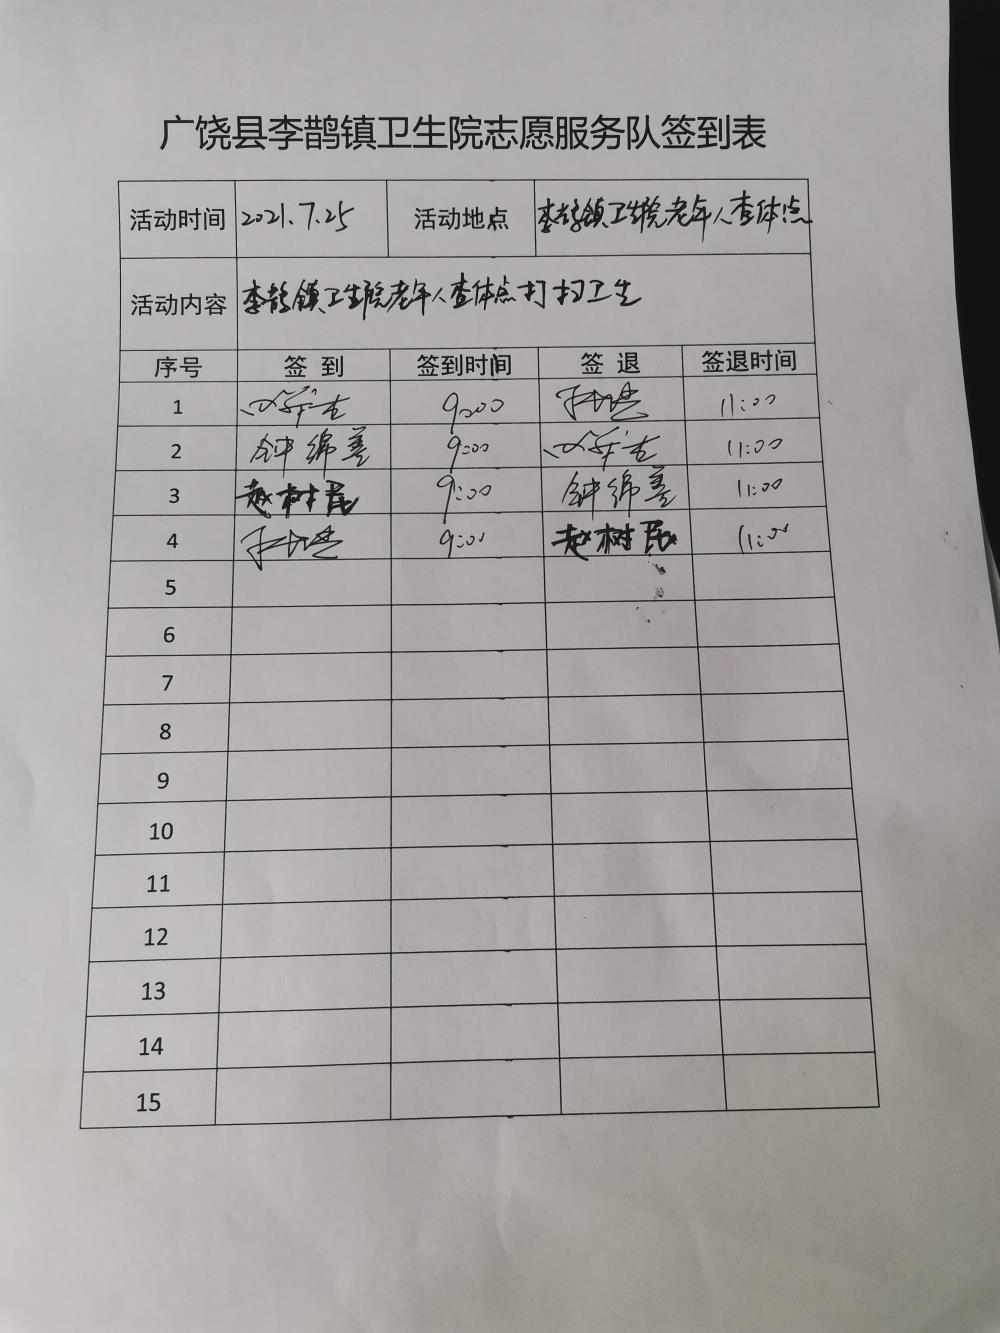 广饶县李鹊镇卫生院志愿服务队签到表
活动时间 2021.7.25 活动地点 李鹊镇卫生院老年人查体点
活动内容 李鹊镇卫生院老年人查体点打扫卫生
序号 签 到 签到时间 签 退 签退时间
1 9:00 11:00
2 钟绵善 9:00 11:00
3 赵树民 9:00 钟绵善 11:00
4 9:00 赵树民 11:00
5
6
7
8
9
10
11
12
13
14
15